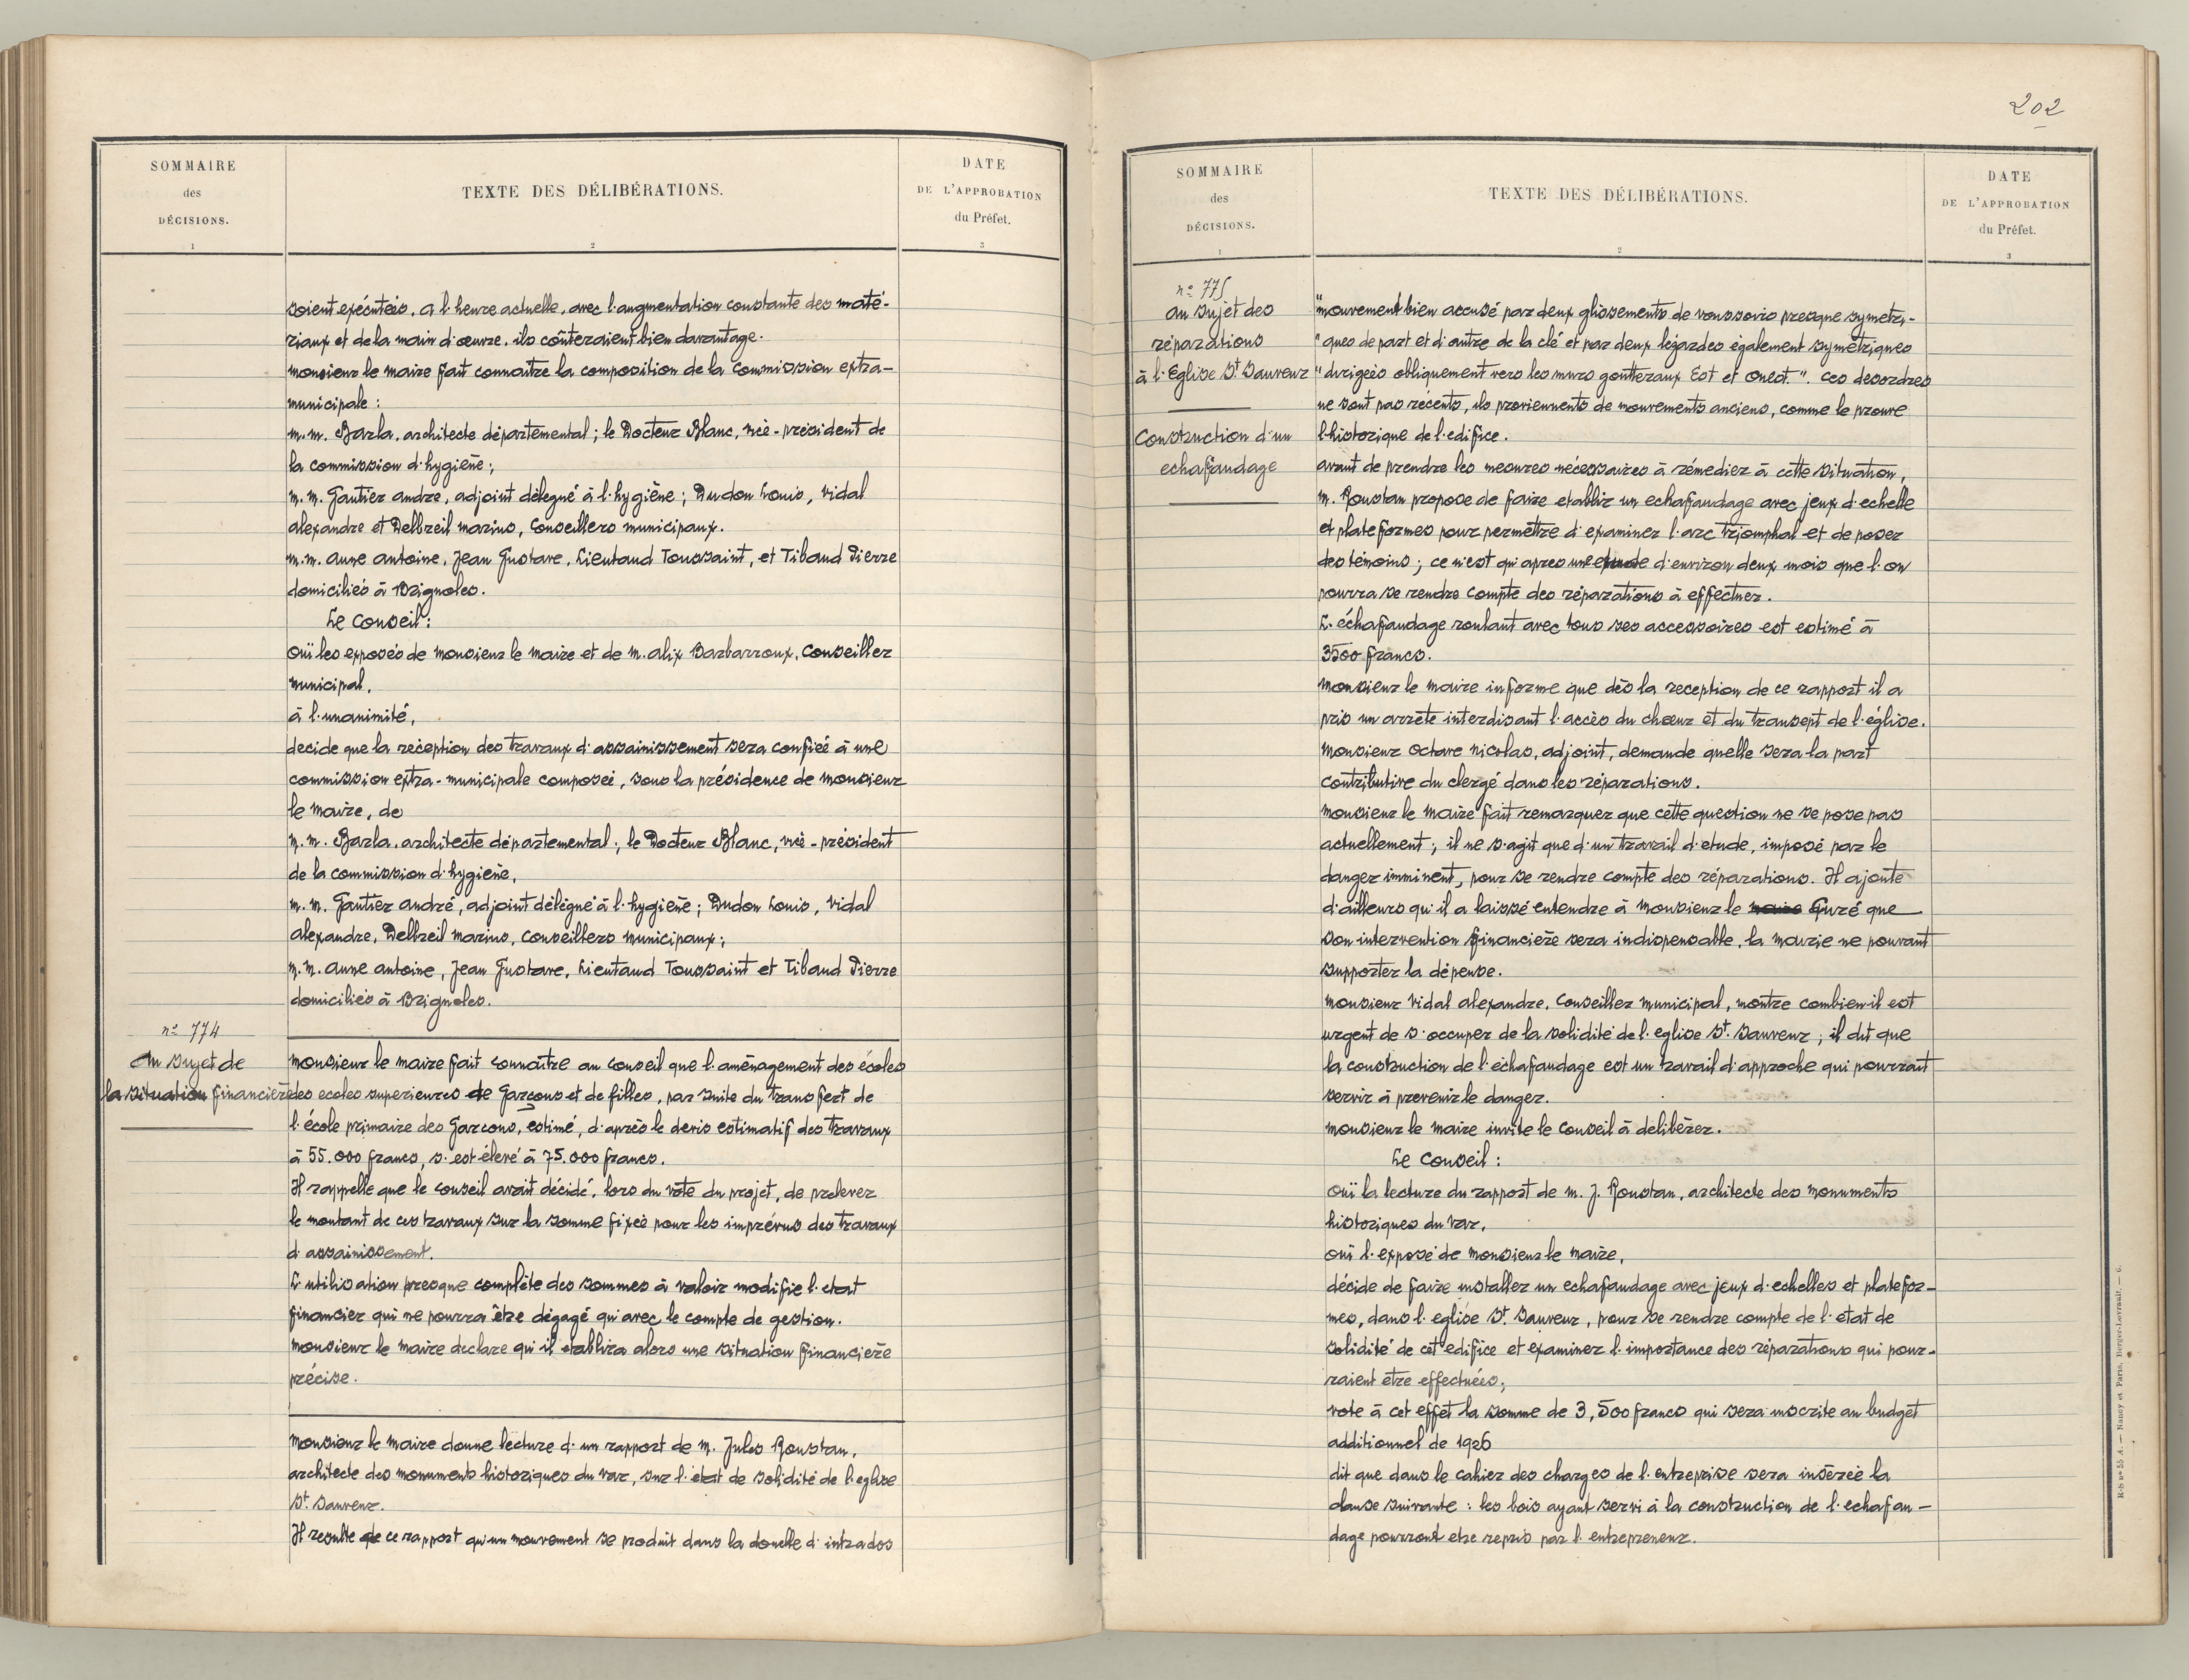 SOMMAIRE
des
DÉCISIONS.
1
TEXTE DES DÉLIBÉRATIONS.
2
DATE
DE L'APPROBATION
du Préfet.
3
soient exécutées. a l'heure actuelle, avec l'augmentation constante des maté-
riaux et de la main d'œuvre, ils coûteraient bien davantage.
monsieur le maire fait connaitre la composition de la Commission extra-
municipale :
m.m. Barla, architecte départemental ; le Docteur Blanc, vice-président de
la commission d'hygiène ;
m.m. Gautier andre, adjoint délégué à l'hygiène ; Dudon Louis, Vidal
alexandre et Delbreil marius, Conseillers municipaux.
m.m. aune antoine, Jean Gustave, Lieutaud Toussaint, et Tibaud Pierre
domiciliés à Brignoles.
Le Conseil :
ouï les exposés de monsieur le maire et de m. alix Barbarroux, Conseiller
municipal,
à l'unanimité,
decide que la réception des travaux d'assainissement sera confiée à une
commission extra-municipale composée, sous la présidence de monsieur
le maire, de
m.m. Barla, architecte départemental ; le Docteur Blanc, vice-président
de la commission d'hygiène,
m.m. Gautier andré, adjoint délégué à l'hygiène ; Dudon Louis, Vidal
alexandre, Delbreil marius, conseillers municipaux ;
m.m. aune antoine, Jean Gustave, Lieutaud Toussaint et Tibaud Pierre
domiciliés à Brignoles.
n° 774
Au sujet de
la situation financière
monsieur le maire fait connaître au conseil que l'aménagement des écoles
des ecoles superieures de Garçons et de filles, par suite du transfert de
l'école primaire des Garcons, estimé, d'après le devis estimatif des travaux
à 55.000 francs, s'est élevé à 75.000 francs.
Il rappelle que le conseil avait décidé, lors du vote du projet, de prelever
le montant de ces travaux sur la somme fixée pour les imprévus des travaux
d'assainissement.
L'utilisation presque complète des sommes à valoir modifie l'etat
financier qui ne pourra être dégagé qu'avec le compte de gestion.
monsieur le maire declare qu'il etablira alors une situation financière
précise.
monsieur le maire donne lecture d'un rapport de m. Jules Roustan,
architecte des monuments historiques du var, sur l'etat de solidité de l'eglise
St. Sauveur.
Il resulte de ce rapport qu'un mouvement se produit dans la douelle d'intrados
202
SOMMAIRE
des
DÉCISIONS.
1
TEXTE DES DÉLIBÉRATIONS.
2
DATE
DE L'APPROBATION
du Préfet.
3
n° 775
au sujet des
réparations
à l'Eglise St Sauveur
Construction d'un
echafaudage
"mouvement bien accusé par deux glissements de voussoirs presque symetri-
"ques de part et d'autre de la clé et par deux lézardes également symétriques
"dirigées obliquement vers les murs gouttereaux Est et Ouest.". Ces desordres
ne sont pas recents, ils proviennents de mouvements anciens, comme le prouve
l'historique de l'edifice.
avant de prendre les mesures nécessaires à rémedier à cette situation,
m. Roustan propose de faire etablir un echafaudage avec jeux d'echelle
et plateformes pour permettre d'examiner l'arc triomphal et de poser
des témoins ; ce n'est qu'apres une etude d'environ deux mois que l'on
pourra se rendre compte des réparations à effectuer.
L'échafaudage roulant avec tous ses accessoires est estimé à
3500 francs.
monsieur le maire informe que dès la reception de ce rapport il a
pris un arrete interdisant l'accès du chœur et du transept de l'église.
monsieur Octave Nicolas, adjoint, demande quelle sera la part
contributive du clergé dans les réparations.
monsieur le maire fait remarquer que cette question ne se pose pas
actuellement ; il ne s'agit que d'un travail d'etude, imposé par le
danger imminent, pour se rendre compte des réparations. Il ajoute
d'ailleurs qu'il a laissé entendre à monsieur le maire Curé que
son intervention financière sera indispensable, la mairie ne pouvant
supporter la dépense.
monsieur Vidal alexandre, Conseiller municipal, montre combien il est
urgent de s'occuper de la solidité de l'eglise St. Sauveur ; il dit que
la construction de l'échafaudage est un travail d'approche qui pourrait
servir à prevenir le danger.
monsieur le maire invite le conseil à deliberer.
Le Conseil :
ouï la lecture du rapport de m. J. Roustan, architecte des monuments
historiques du var,
ouï l'exposé de monsieur le maire,
décide de faire installer un echafaudage avec jeux d'echelles et platefor-
mes, dans l'eglise St. Sauveur, pour se rendre compte de l'état de
solidité de cet edifice et examiner l'importance des réparations qui pour-
raient être effectuées ;
vote à cet effet la somme de 3,500 francs qui sera inscrite au budget
additionnel de 1926
dit que dans le cahier des charges de l'entreprise sera insérée la
clause suivante : les bois ayant servi à la construction de l'echafau-
dage pourront etre repris par l'entrepreneur.
R-S n° 55 A. — Nancy et Paris, Berger-Levrault. — 6.